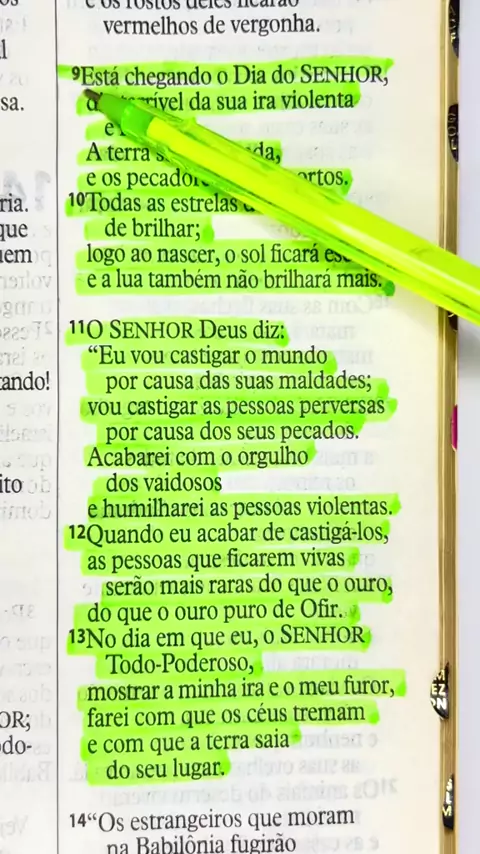 e os rostos deles ficarão
vermelhos de vergonha.
9Está chegando o Dia do SENHOR,
da sua ira violenta
A terra
e os
10Todas as estrelas
de brilhar;
logo ao nascer, o sol ficará
e a lua também não brilhará mais.
11O SENHOR Deus diz:
“Eu vou castigar o mundo
por causa das suas maldades;
vou castigar as pessoas perversas
por causa dos seus pecados.
Acabarei com o orgulho
dos vaidosos
e humilharei as pessoas violentas.
12Quando eu acabar de castigá-los,
as pessoas que ficarem vivas
serão mais raras do que o ouro,
do que o ouro puro de Ofir.
13No dia em que eu, o SENHOR
Todo-Poderoso,
mostrar a minha ira e o meu furor,
farei com que os céus tremam
e com que a terra saia
do seu lugar.
14“Os estrangeiros que moram
na Babilônia fugirão